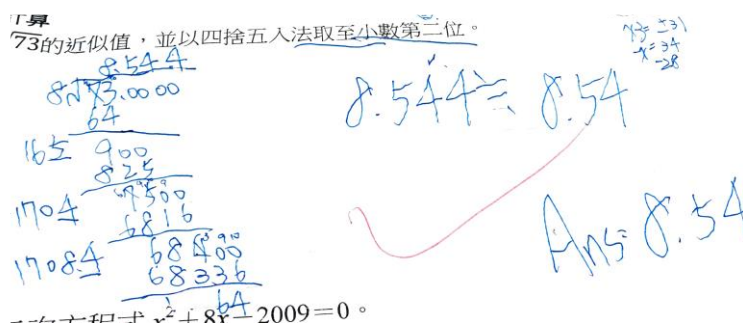 計算
√73的近似值，並以四捨五入法取至小數第二位。
x-3=±31
x=34
-28
8.544
8√73.0000
64
165 900
825
1704 7500
6816
17084 68400
68336
64
8.544≒8.54
Ans: 8.54
次方程式 x²+8x-2009=0。